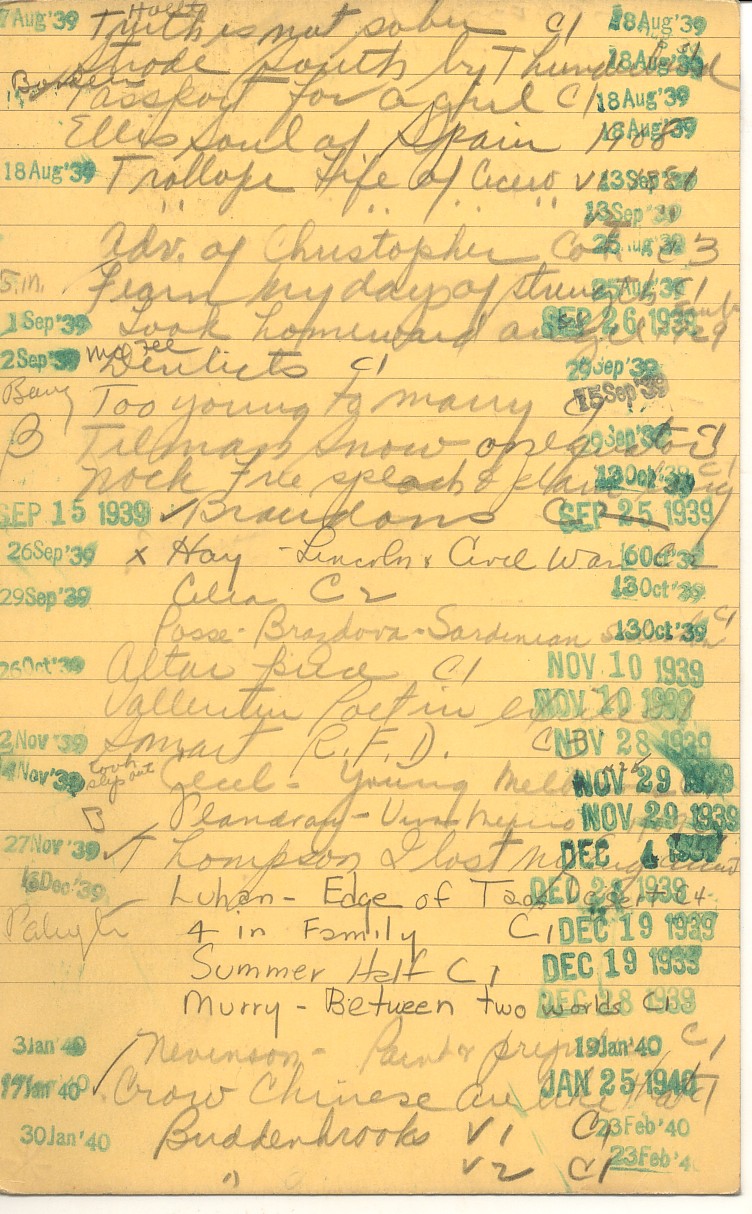 7Aug'39 Holtby Truth is not sober C1 18Aug'39
Strode South by Thunderbird 18Aug'39
Borden Passport for a girl C1 18Aug'39
Ellis Soul of Spain 1908 18Aug'39
18Aug'39 Trollope Life of Cicero V1 1881 13Sep'39
" " " " 13Sep'39
Adv. of Christopher Col C3
Fearn My days of strength C1 25Aug'39
1Sep'39 Look homeward angel 1929 SEP 26 1939
2Sep'39 McFee Derelicts C1 29Sep'39
Too young to marry C1 15Sep'39
B Tilman Snow on equator C1 29Sep'39
Nock Free speech & plain C1 13Oct'39
SEP 15 1939 ✓ Brandons C2 SEP 25 1939
26Sep'39 x Hay - Lincoln & Civil War C2 16Oct'39
29Sep'39 Celia C2 13Oct'39
Posse-Brazdova - Sardinian C1 13Oct'39
26Oct'39 Altar piece C1 NOV 10 1939
Vallentin Poet in exile NOV 10 1939
2Nov'39 Smart R.F.D. C3 NOV 28 1939
Nov'39 took slip out Cecil - Young Melb NOV 29 1939
B NOV 29 1939
27Nov'39 ✓ Thompson I lost my English accent DEC 4 1939
Dec'39 Luhan - Edge of Taos desert C4 DEC 1939
4 in Family C1 DEC 19 1939
Summer Half C1 DEC 19 1939
Murry - Between two works C1 DEC 28 1939
3Jan'40 Nevinson - Paint & prejudice C1 19Jan'40
Jan'40 ✓ Crow Chinese are like that C1 JAN 25 1940
30Jan'40 Buddenbrooks V1 C1 23Feb'40
" V2 C1 23Feb'4